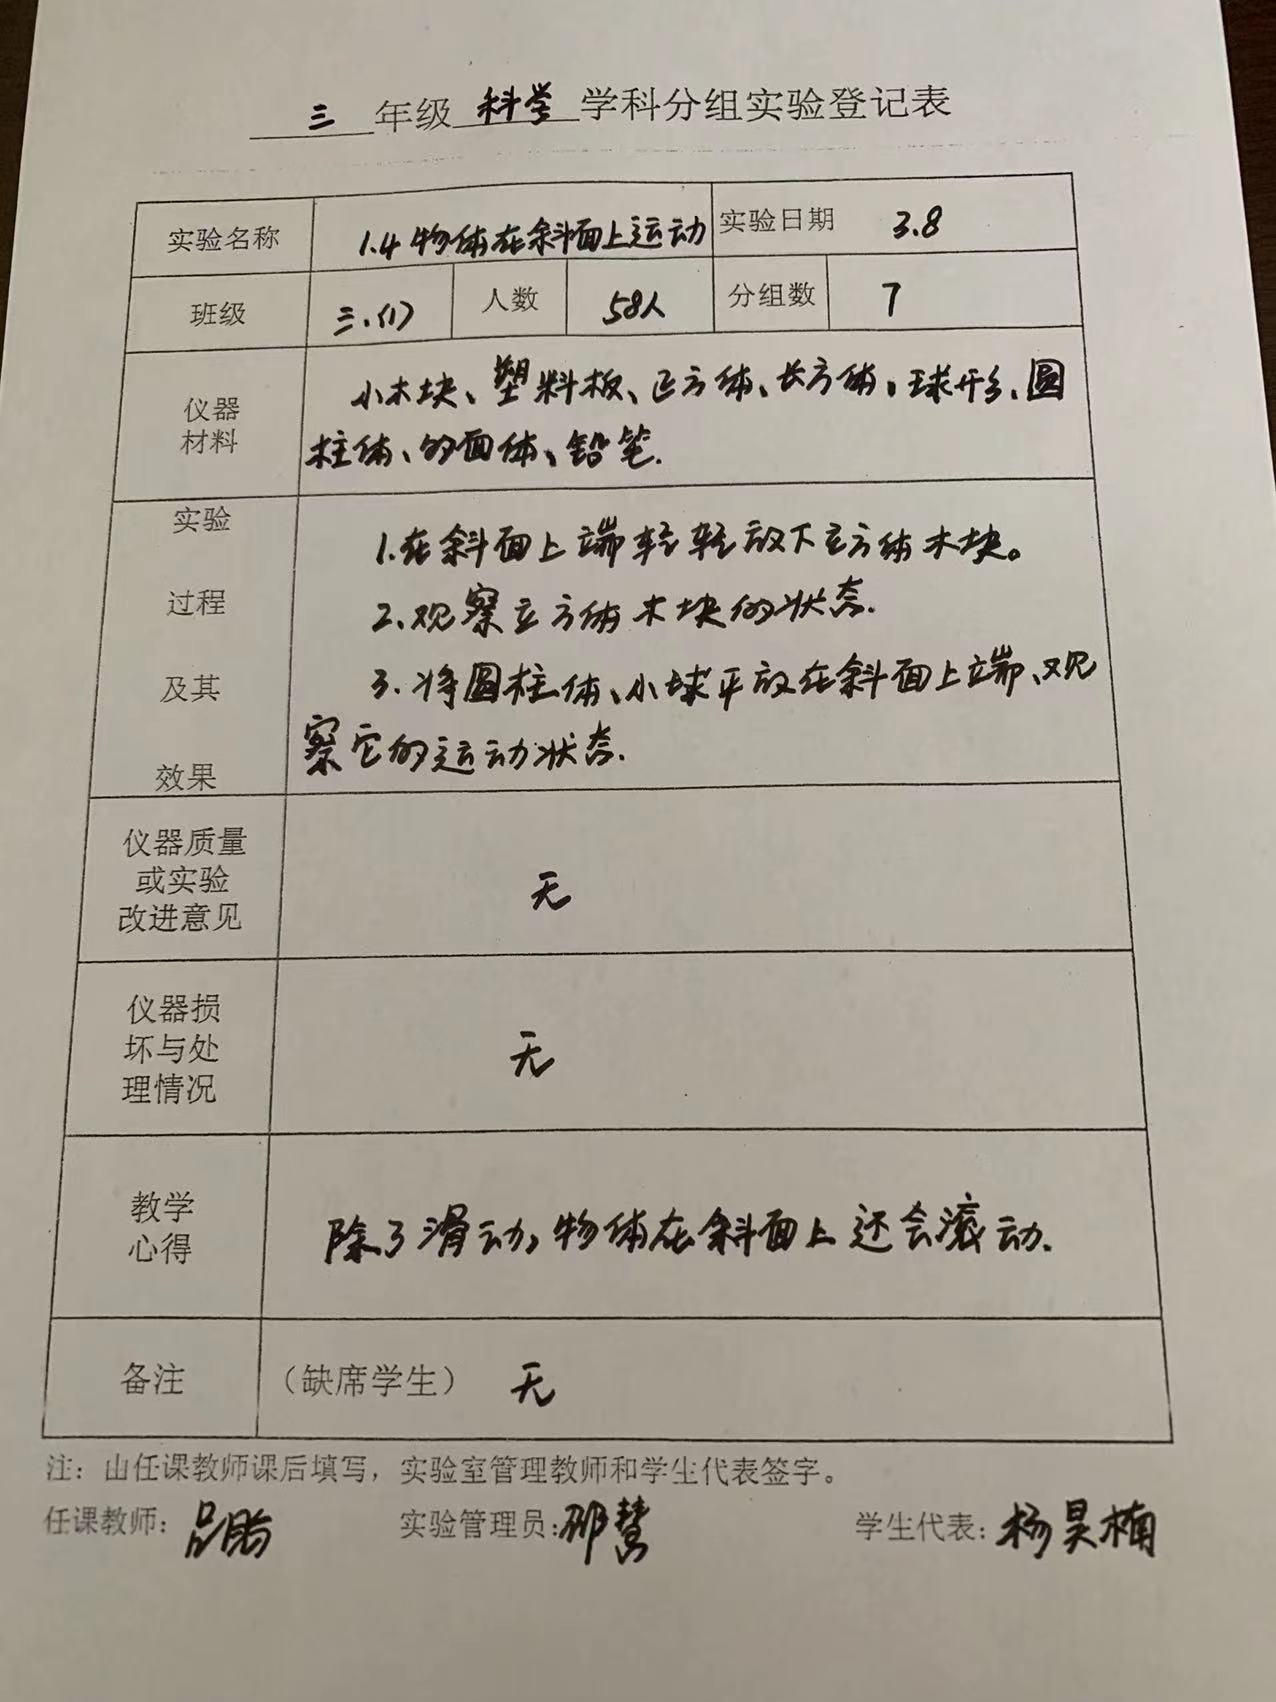 三年级科学学科分组实验登记表
实验名称 1.4物体在斜面上运动 实验日期 3.8
班级 三.(1) 人数 58人 分组数 7
仪器
材料
小木块、塑料板、正方体、长方体、球形、圆
柱体、的面体、铅笔.
实验
过程
及其
效果
1.在斜面上端轻轻放下立方体木块。
2.观察立方体木块的状态.
3.将圆柱体、小球平放在斜面上端、观
察它的运动状态.
仪器质量
或实验
改进意见
无
仪器损
坏与处
理情况
无
教学
心得
除了滑动,物体在斜面上还会滚动.
备注 (缺席学生) 无
注:山任课教师课后填写,实验室管理教师和学生代表签字。
任课教师: 实验管理员:邵慧 学生代表:杨昊楠